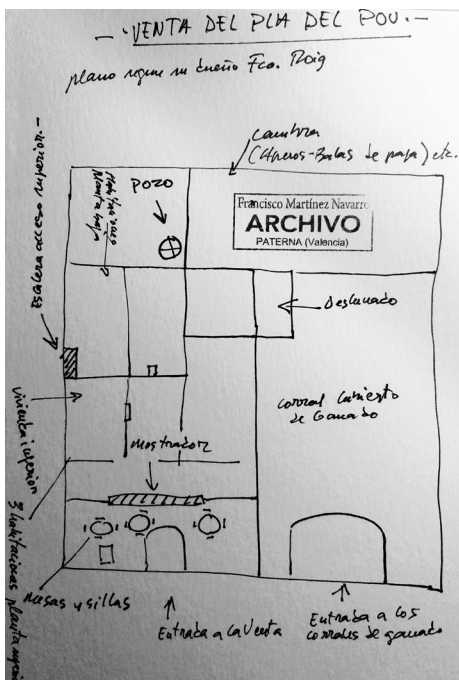 - VENTA DEL PLA DEL POU. -
plano segun su dueño Fco. Roig
Cambra
(Aperos-Balas de paja) etc.
Escalera acceso superior.-
Planta baja
POZO
Francisco Martínez Navarro
ARCHIVO
PATERNA (Valencia)
Deslunado
corral cubierto
de Ganado
vivienda inferior
3 habitaciones planta
mostrador
mesas y sillas
Entrada a la Venta
Entrada a los
corrales de ganado